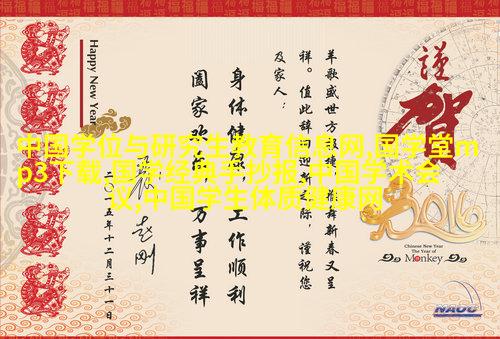 謹
賀
2016
Chinese New Year
The Year of
Monkey
NAOC
羊歌盛世方报捷，猴舞新春又呈
祥。值此辞旧迎新之际，谨祝您
及家人：
身体健康，工作顺利
阖家欢乐，万事呈祥
二〇一五年十二月三十一日
Happy New Year
中国学位与研究生教育信息网,国学堂m
p3下载,国学经典手抄报,中国学术会
议,中国学生体质健康网